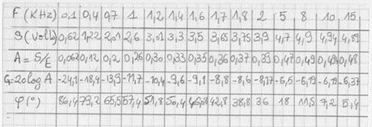 F (KHz) 0,1 0,4 0,7 1 1,2 1,4 1,6 1,7 1,8 2 5 8 10 15
S (Volt) 0,62 1,22 2,01 2,6 3,01 3,3 3,5 3,65 3,75 3,9 4,7 4,9 4,94 4,89
A = S/E 0,062 0,12 0,2 0,26 0,30 0,33 0,35 0,36 0,37 0,39 0,47 0,49 0,49 0,48
G=20log A -24,1 -18,4 -13,9 -11,7 -10,4 -9,6 -9,1 -8,8 -8,6 -8,17 -6,5 -6,19 -6,19 -6,37
φ (°) 86,4 79,2 65,5 57,4 51,8 50,4 42,8 38,8 36 18 11,5 7,2 5,4